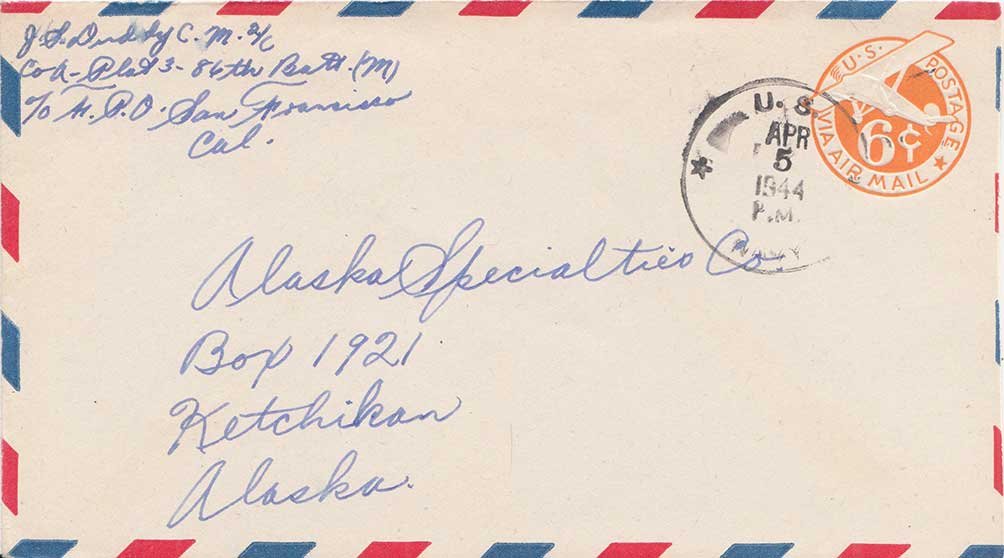 J. S. Duddy C. M. 2/c
Co A - Plat 3 - 86th Batt. (M)
℅ F. P. O. San Francisco
Cal.
U.S. POSTAGE
6¢
VIA AIR MAIL
U. S.
APR
5
1944
P.M.
NAVY
Alaska Specialties Co.
Box 1921
Ketchikan
Alaska.